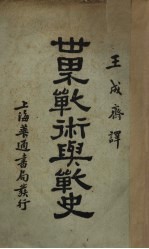 王成齋譯
世界戰術與戰史
上海普通書局發行